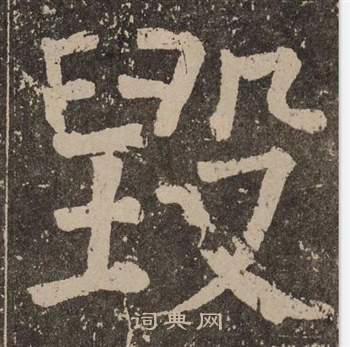 毀
词典网